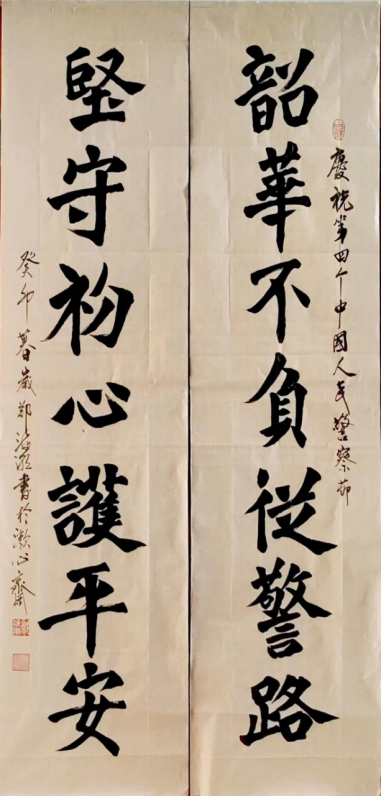 慶祝第四个中國人民警察節
韶華不負從警路
堅守初心護平安
癸卯暮歲鄭書於心齋